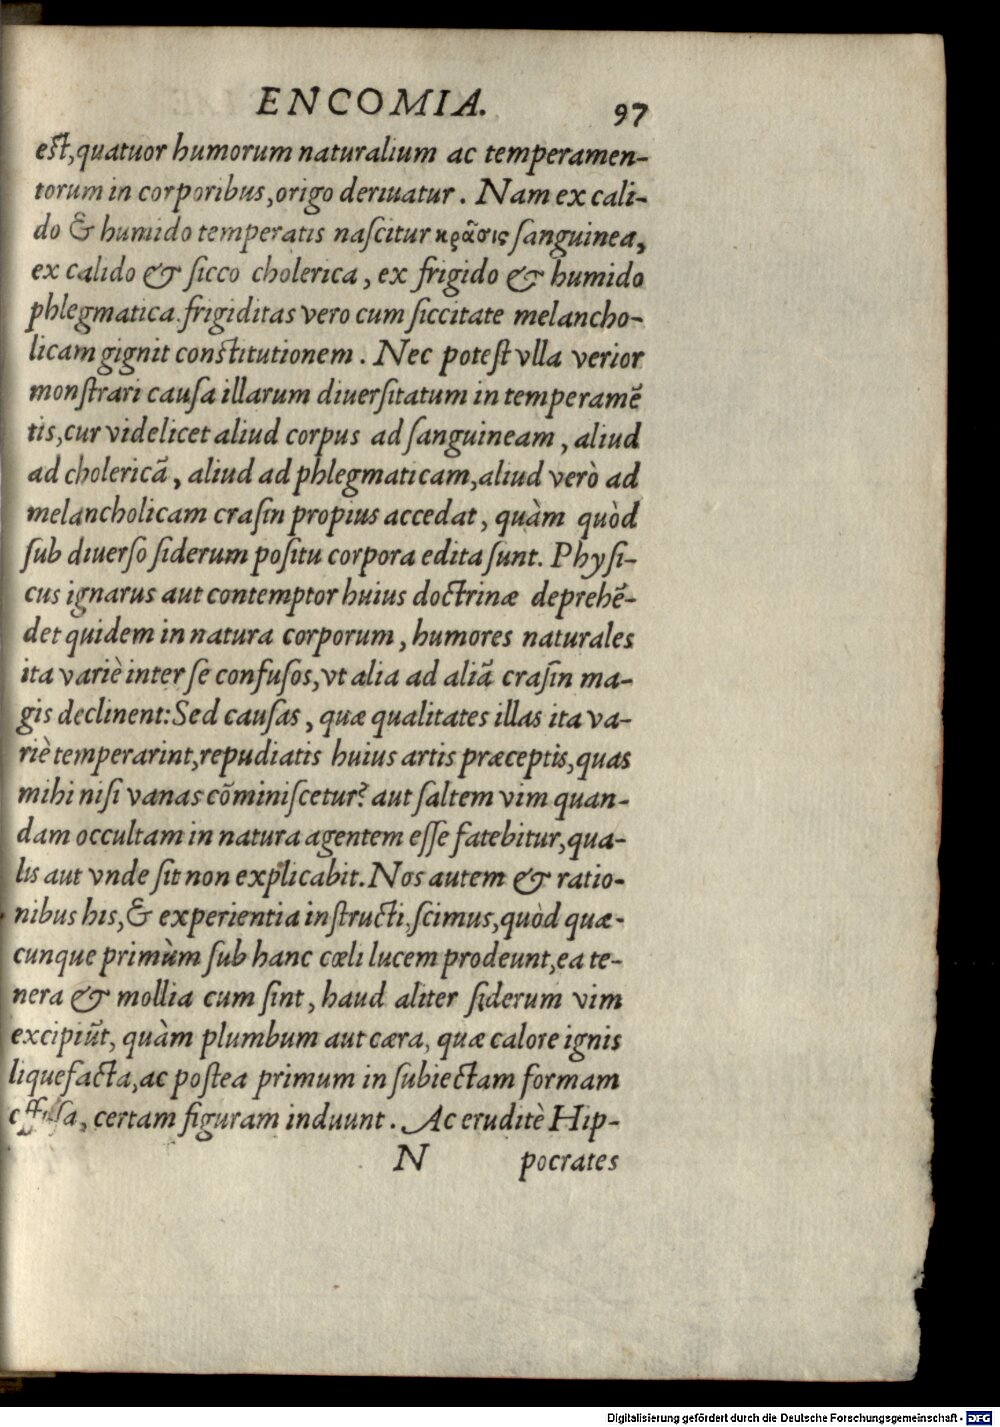 ENCOMIA. 97
eſt, quatuor humorum naturalium ac temperamen-
torum in corporibus, origo deriuatur. Nam ex cali-
do & humido temperatis naſcitur κρᾶσις ſanguinea,
ex calido & ſicco cholerica, ex frigido & humido
phlegmatica. frigiditas vero cum ſiccitate melancho-
licam gignit conſtitutionem. Nec poteſt vlla verior
monſtrari cauſa illarum diuerſitatum in temperamē
tis, cur videlicet aliud corpus ad ſanguineam, aliud
ad cholericā, aliud ad phlegmaticam, aliud verò ad
melancholicam craſin propius accedat, quàm quòd
ſub diuerſo ſiderum poſitu corpora edita ſunt. Phyſi-
cus ignarus aut contemptor huius doctrinæ deprehē-
det quidem in natura corporum, humores naturales
ita variè inter ſe confuſos, vt alia ad aliā craſin ma-
gis declinent: Sed cauſas, quæ qualitates illas ita va-
riè temperarint, repudiatis huius artis præceptis, quas
mihi niſi vanas cōminiſcetur? aut ſaltem vim quan-
dam occultam in natura agentem eſſe fatebitur, qua-
lis aut vnde ſit non explicabit. Nos autem & ratio-
nibus his, & experientia inſtructi, ſcimus, quòd quæ-
cunque primùm ſub hanc cœli lucem prodeunt, ea te-
nera & mollia cum ſint, haud aliter ſiderum vim
excipiūt, quàm plumbum aut cæra, quæ calore ignis
liquefacta, ac poſtea primum in ſubiectam formam
effuſa, certam figuram induunt. Ac eruditè Hip-
N pocrates
Digitalisierung gefördert durch die Deutsche Forschungsgemeinschaft - DFG